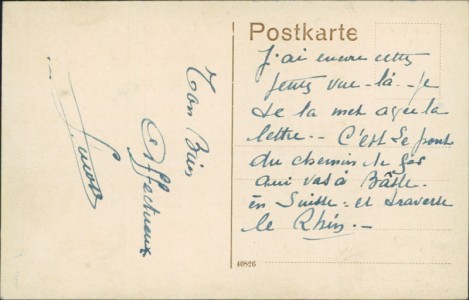 Postkarte
J'ai encore cette
petite vue-là - je
te la met avec la
lettre.. C'est le pont
du chemin de fer
qui vas à Bâsle.
en Suisse. et traverse
le Rhin. -
Ton Bien
Affectueux
40826